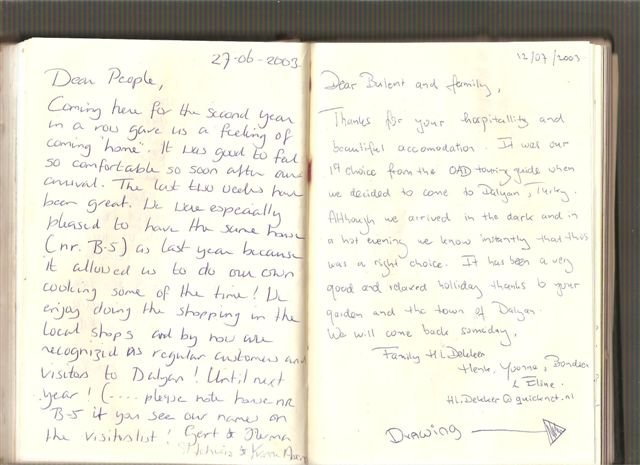 27-06-2003
Dear People,
Coming here for the second year
in a row gave us a feeling of
coming 'home'. It was good to feel
so comfortable so soon after our
arrival. The last two weeks have
been great. We were especially
pleased to have the same house
(nr. B-5) as last year because
it allowed us to do our own
cooking some of the time! We
enjoy doing the shopping in the
local shops and by now are
recognized as regular customers and
visitors to Dalyan! Until next
year! (.... please note house nr
B-5 if you see our names on
the visitorslist! Gert & Herma
12/07/2003
Dear Bulent and family,
Thanks for your hospitallity and
beautiful accomodation. It was our
1e choice from the OAD touring guide when
we decided to come to Dalyan, Turky.
Although we arrived in the dark and in
a hot evening we know instantly that this
was a right choice. It has been a very
good and relaxed holliday thanks to your
garden and the town of Dalyan.
We will come back someday.
Family H.Dekker
Henk, Yvonne,
& Eline.
H.Dekker@quicknet.nl
DRAWING